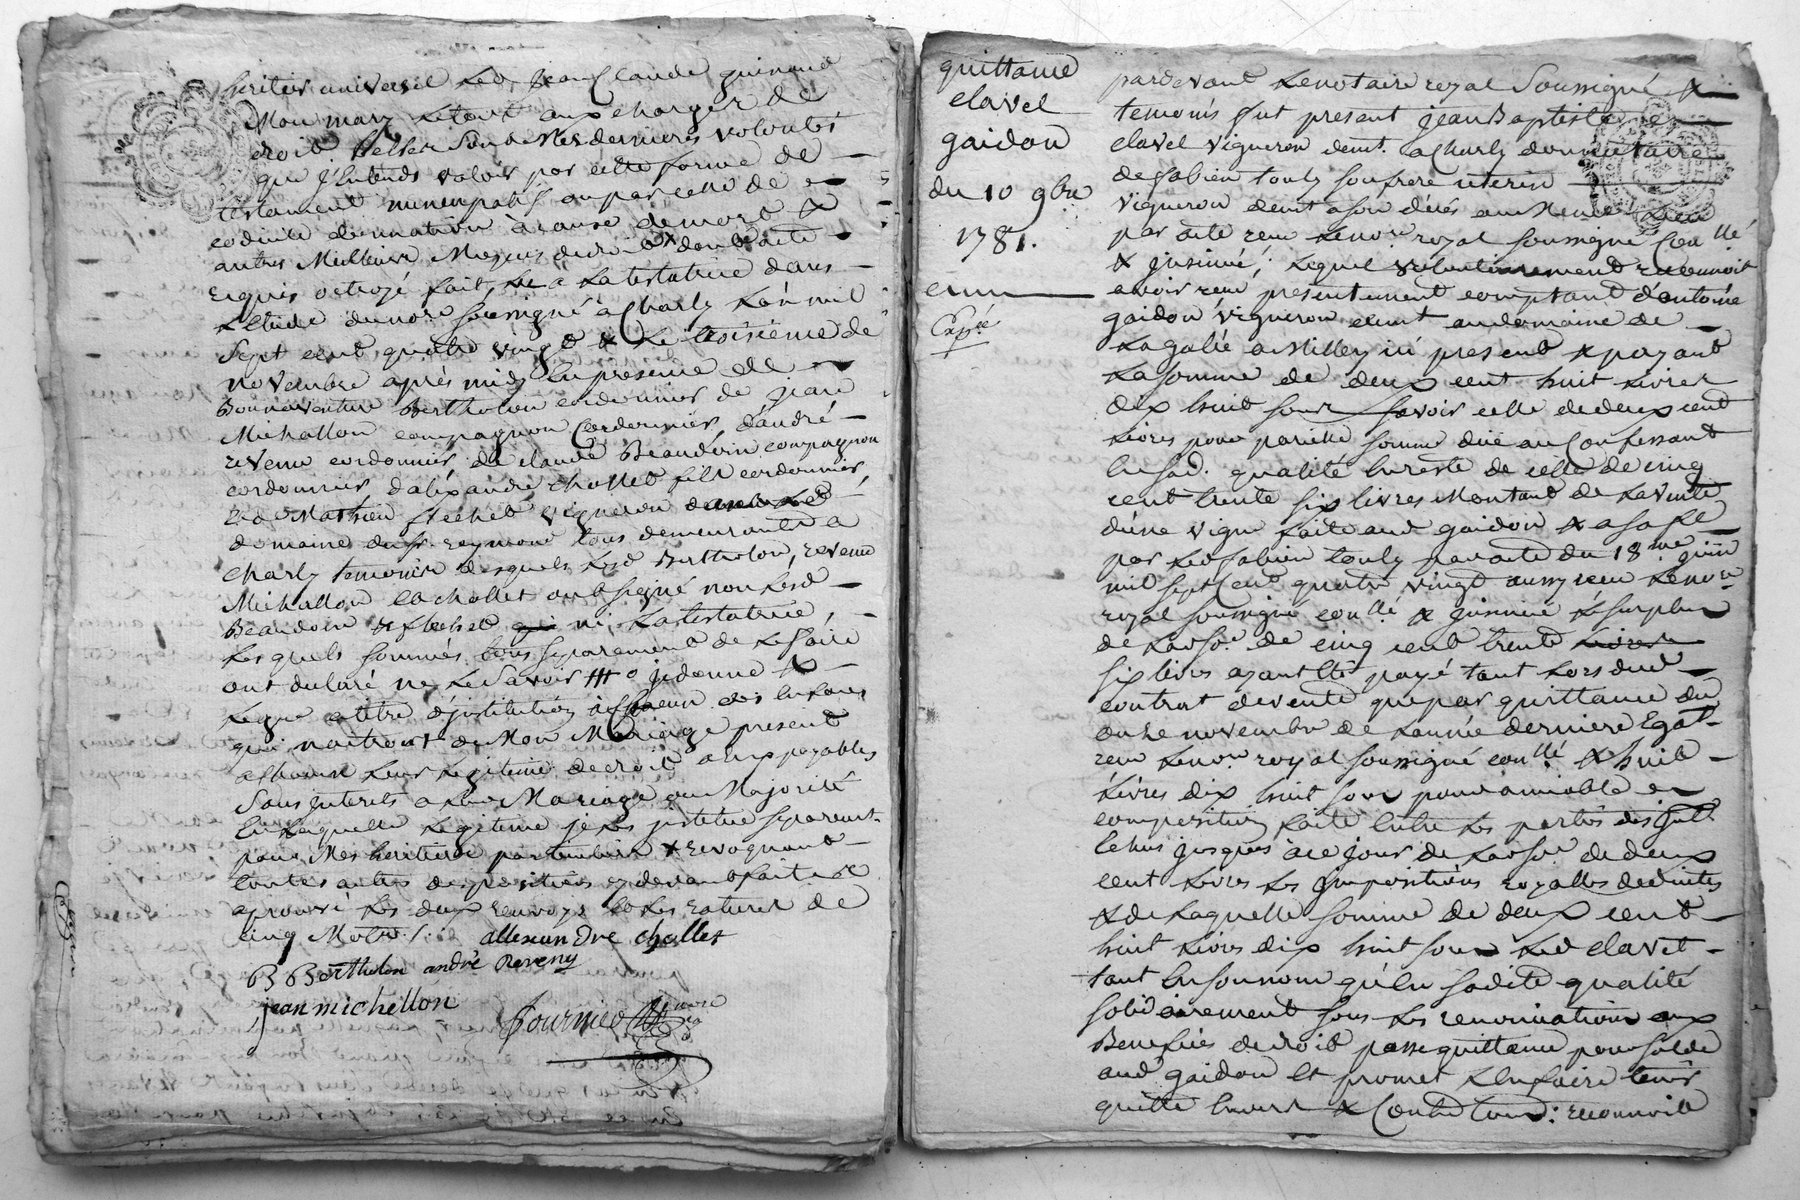 heritier universel led. jean Claude guinand
Mon mary le tout aux charges de
droit telles sont mes dernieres volontés
que j'entends valoir par cette forme de
testament nuncupatif ou par celle de
codicile donnation à cause de mort &
autres Meilleurs Moyens de droit dont acte
requis octroyé fait, lu a la testatrice dans
l'etude du no.re soussigné à Charly l'an mil
sept cent quatre vingt & le troisieme de
novembre après midy en presence de
Bonnaventure Bertholon cordonnier de jean
Michallon compagnon Cordonnier, d'andré
revenu cordonnier, de claude Beaudoin compagnon
cordonnier d'alexandre chollet fils cordonnier,
& de Mathieu flechet vigneron
domaine du sr. reymond tous demeurants a
charly temoins desquels lesd Bertholon, revenu
Michallon & chollet ont signé non lesd
Beaudoin & flechet qui ni la testatrice,
lesquels sommés tous separement de le faire
ont declaré ne le savoir ttt o je donne &
legue a titre d'institution à Chacun des enfans
qui naitront de Mon Mariage present
a chacun leur legitime de droit a eux payables
sans interets a leur Mariage ou Majorité
en laquelle legitime je les institue separemt.
pour Mes heritiers particuliers & revoquant
toutes autres dispositions cy devant faites
aprouvé les deux renvoys & les ratures de
cinq Mots ./.
allexandre chollet
B Bertholon andré Reveny
jean michellon
fournier
quittance
clavel
gaidon
du 10 9bre
1781.
Exp.ée
pardevant le notaire royal soussigné &
temoins fut present jean Baptiste
clavel vigneron demt. a Charly donnataire
de fabien touly son frere uterin
vigneron demt a son décès au Meme lieu
par acte reçu le no.re royal soussigné Con.llé
& jnsinué; lequel volontairement reconnoit
avoir reçu presentement comptant d'antoine
gaidon vigneron demt au domaine de
la galée a Milley ici present & payant
la somme de deux cent huit livres
dix huit sous savoir celle de deux cent
livres pour pareille somme due au Confessant
en sad. qualité en reste de celle de cinq
cent trente six livres Montant de la vente
d'une vigne faite aud gaidon & a sa fe
par led fabien touly par acte du 18me juin
mil sept Cent quatre vingt aussy reçu le no.re
royal soussigné con.llé & jnsinué le surplus
de lad so.e de cinq cent trente livres
six livres ayant été payé tant lors dud
contrat de vente que par quittance du
onze novembre de l'année derniere Egal.
reçu le no.re royal soussigné con.llé & huit
livres dix huit sous pour amiable
composition faite entre les parties des jnt.
echus jusques à ce jour de lad so.e de deux
cent livres les jmpositions royalles deduites
& de laquelle somme de deux cent
huit livres dix huit sous led clavel
tant en son nom qu'en sadite qualité
solidairement sous les renonciations aux
Benefices de droit passe quittance pour solde
aud gaidon et promet l'en faire tenir
quitte envers & Contre tous: reconnoit